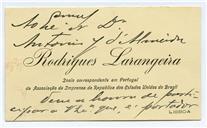 Antonio J. d'Almeida
Rodrigues Larangeira
Socio correspondente em Portugal
da Associação de Imprensa da Republica dos Estados Unidos do Brazil
Tem a honra de
que o portador
LISBOA